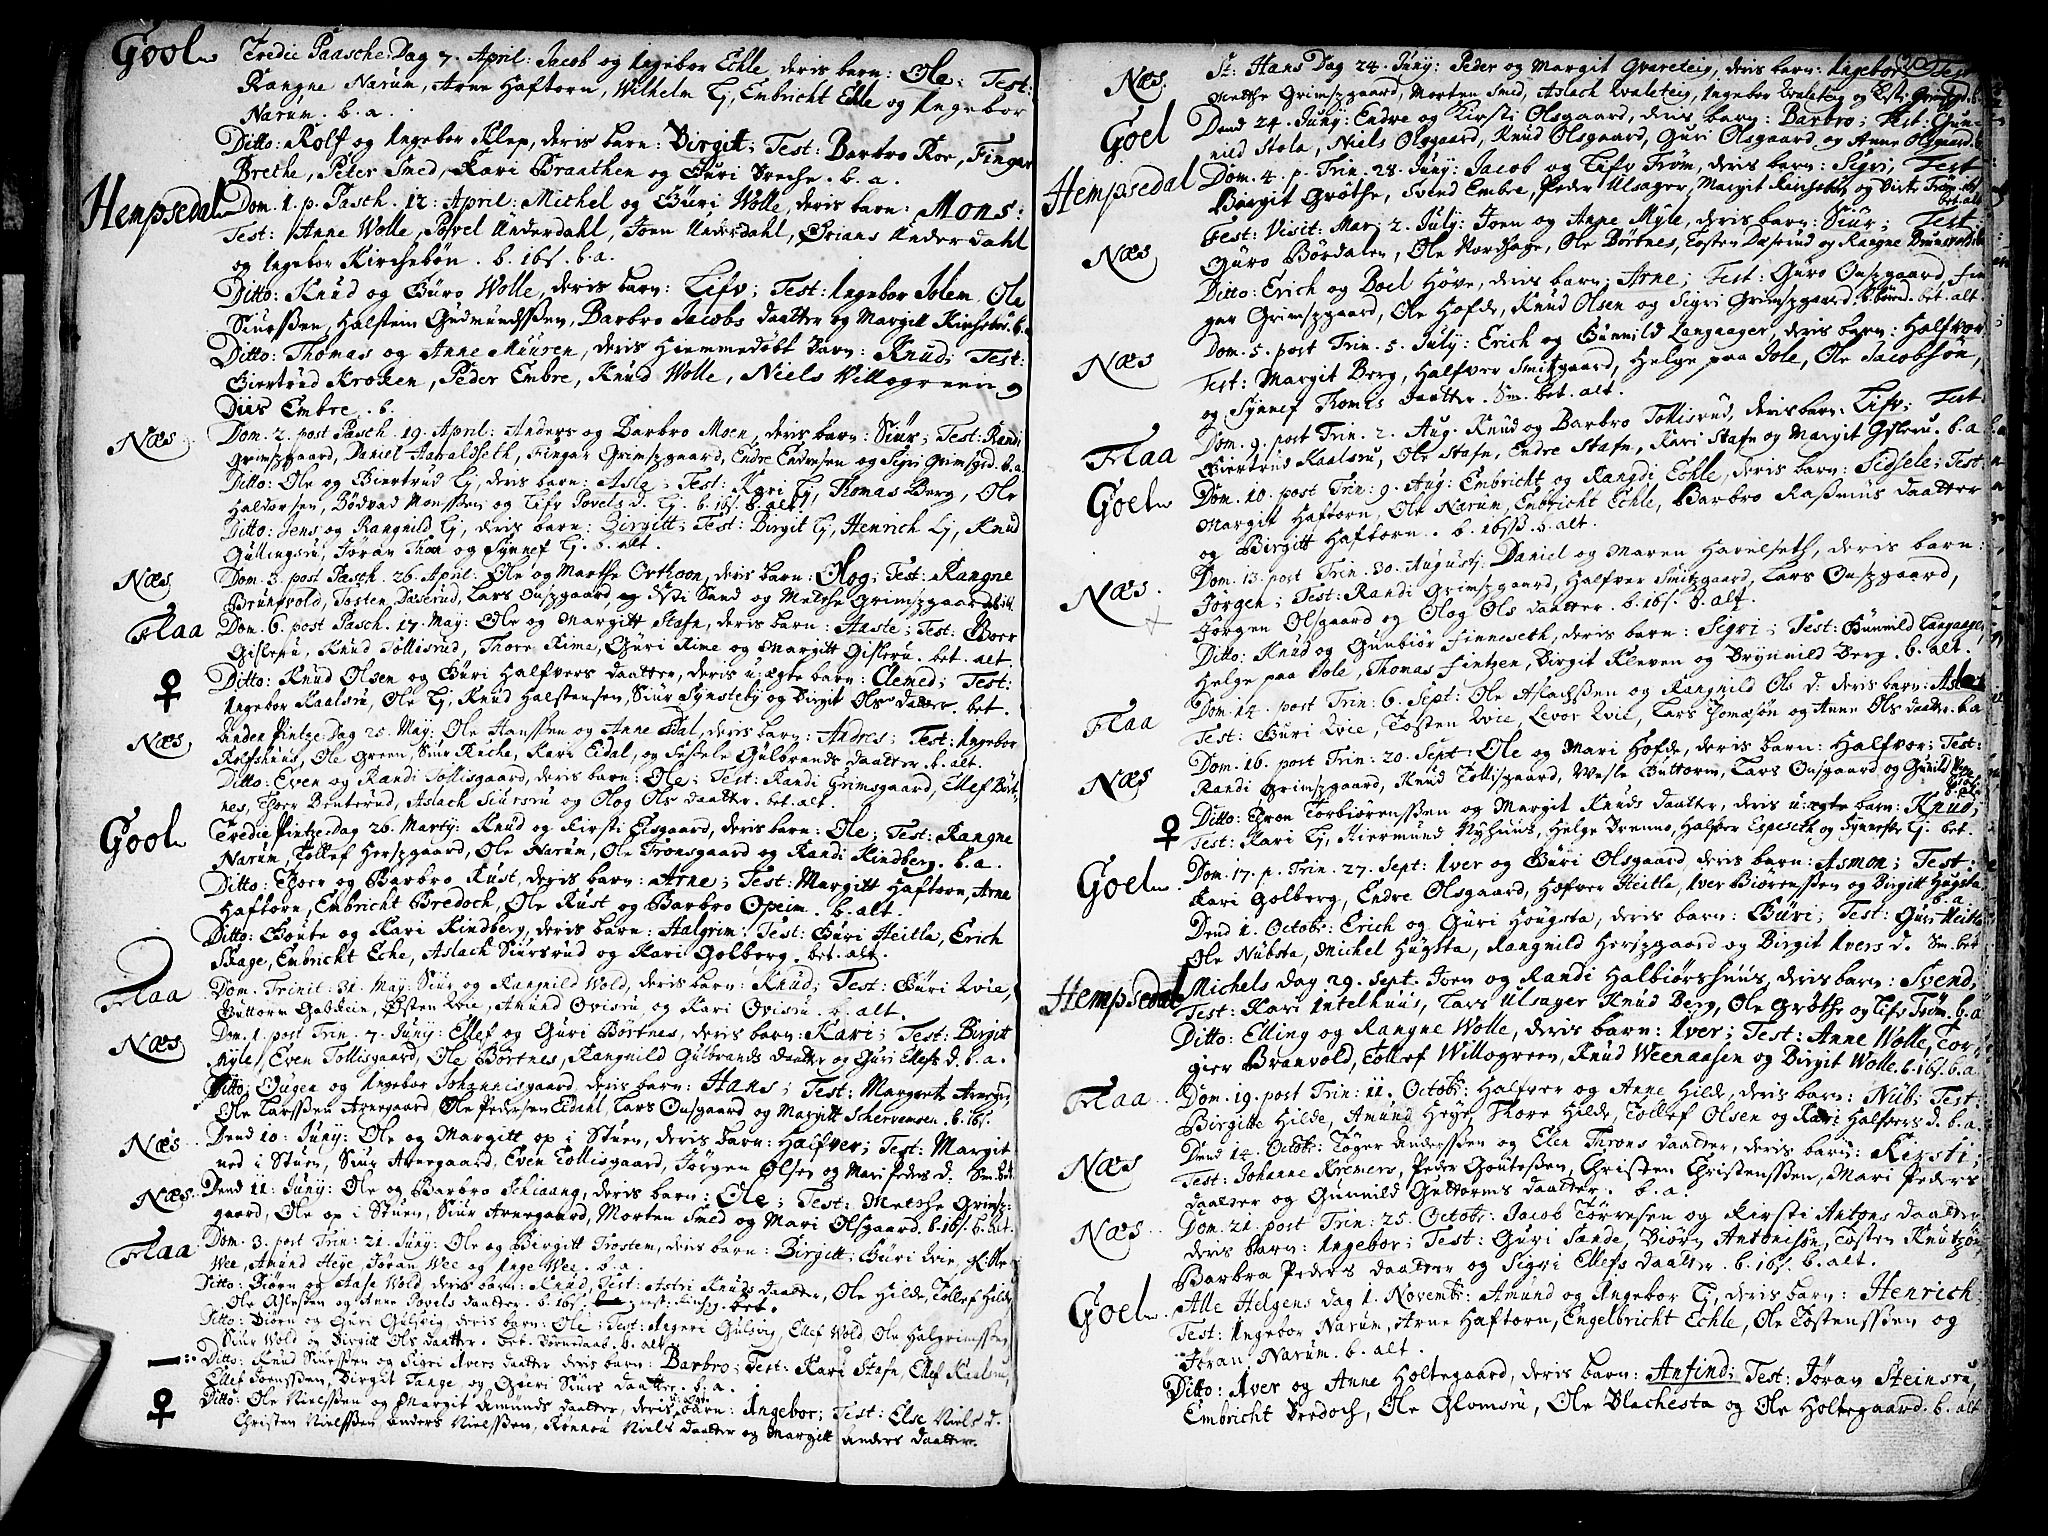 Gool Tredie Paasche-Dag 7. April: Jacob og Ingebor Echle, deris barn: Ole; Test:
Rangne Narum, Arne Haftorn, Wilhelm Ej, Embricht Echle og Ingebor
Narum. b. a.
Ditto: Rolf og Ingebor Klep, deris barn: Birgit; Test: Barbro Roe, Fingar
Brethe, Peter Smed, Kari Braathen og Guri Breche. b. a.
Hempsedal Dom. 1. p. Pasch. 12. April: Michel og Guri Wolle, deris barn: Mons:
Test: Anne Wolle, Povel Underdahl, Joen Underdahl, Brians Underdahl
og Ingebor Kirchebøn. b. 16s. b. a.
Ditto: Knud og Guro Wolle, deris barn: Lifv; Test: Ingebor Solem, Ole
Siurssen, Halstein Gudmundssen, Barbro Jacobs daatter og Margitt
Ditto: Thomas og Anne Muuren, deris Hiemmedøbt barn: Knud; Test:
Giertrud Kroken, Peder Embre, Knud Wolle, Niels Villogreen og
Diis Embre. b.
Næs Dom. 2. post Pasch. 19. April: Anders og Barbro Moen, deris barn: Siur; Test: Randi
Grimsgaard, Daniel Havaldseth, Fingar Grimsgaard, Endre Endresen og Sigri Grimsgrd. b. a.
Ditto: Ole og Giertrud Ej, deris barn: Asle; Test: Kari Ej, Thomas Berg, Ole
Haldorsen, Bødvad Monssen og Lifv Povels d. Ej. b. 16s. b. alt.
Ditto: Jens og Rangnild Ej, deris barn: Birgitt; Test: Birgit Ej, Henrich Ej, Knud
Gullingsrud, Joran Thon og Synnef Ej. b. alt.
Næs Dom. 3. post Pasch. 26. April: Ole og Marthe Orthoon, deris barn: Olog; Test: Rangne
Brunsvold, Tosten Daserud, Lars Onsgaard, og Sand og Metthe Grimsgaard
Flaa Dom. 6. post Pasch. 17. May: Ole og Margitt Stafn, deris barn: Aaste; Test: Boer
Gislerud, Knud Tollisrud, Thore Rime, Guri Rime og Margitt Gisleru. bet. alt.
♀ Ditto: Knud Olsen og Guri Halfvers daatter, deris u-ægte barn: Clemed; Test:
Ingebor Kaalsru, Ole Ej, Knud Halstensen, Siur Synsteby og Birgit Ols daatter. bet.
Næs Anden Pintze-Dag 25. May: Ole Hanssen og Anne Edal, deris barn: Andres; Test: Ingebor
Rolfshuus, Ole Green, Siur Ruche, Kari Eidal, og Sidsele Gulbrands daatter. b. alt.
Ditto: Even og Randi Tollisgaard, deris barn: Ole; Test: Randi Grimsgaard, Ellef Bört-
nes, Thoer Benterud, Aslach Siursru og Olog Ols daatter. bet. alt.
Gool Tredie Pintze-Dag 26. Marty: Knud og Kirsti Eisgaard, deris barn: Ole; Test: Rangne
Narum, Tollef Hersgaard, Ole Narum, Ole Tronsgaard og Randi Kindberg. b. a.
Ditto: Thoer og Barbro Rust, deris barn: Arne; Test: Margitt Haftorn, Arne
Haftorn, Embricht Bredoch, Ole Rust og Barbro Opeim. b. alt.
Ditto: Goute og Kari Kindberg, deris barn: Halgrim: Test: Guri Heitla, Erich
Skage, Embricht Eche, Aslach Siursrud og Kari Golberg. bet. alt.
Flaa Dom. Trinit: 31. May: Siur og Rangnild Wold, deris barn: Knud; Test: Guri Qvie,
Guttorm Gabbein, Østen Qvie, Amund Ovisru og Kari Ovisru. b. alt.
Næs Dom. 1. post Trin. 7. Juny: Ellef og Guri Bortnes, deris barn: Kari; Test: Birgit
Myle, Even Tollisgaard, Ole Bortnes, Rangnild Gulbrands daatter og Guri Ellefs d. b. a.
Ditto: Eugen og Ingebor Johannisgaard, deris barn: Hans; Test: Margrete
Ole Larssen Arnegaard, Ole Pedersen Eidahl, Lars Onsgaard og Margitt Schervensen. b. 16s.
Næs Dend 10: Juny: Ole og Margitt op i Stuen, deris barn: Halfver; Test: Margit
ned i Stuen, Siur Arnegaard, Even Tollisgaard, Jørgen Olsen og Mari Peders d.
Næs Dend 11: Juny: Ole og Barbro Schiaang, deris barn: Ole; Test: Metthe Grims-
gaard, Ole op i Stuen, Siur Arnegaard, Morten Smed og Mari Olsgaard. b. 16s. b. alt.
Flaa Dom. 3. post Trin: 21. Juny: Ole og Birgitt Trostem, deris barn: Birgitt; Guri Qvie,
Wee, Amund Heye, Joran Wee og Inge Wee. b. a.
Ditto: Biørn og Aase Wold, deris barn: Knud, Test: Astri Knuds daatter, Ole Hilde, Tollef Hilde
Ole Aslesten og Anne Povels daatter. b. 16s. bet.
Ditto: Biørn og Guri Gulsvig, deris barn: Ole; Test: Aageri Gulsvig, Ellef Wold, Ole Halgrimssen
Siur Wold og Birgitt Ols daatter. b. alt
Ditto: Knud Siurssen og Sigri Ivers daatter, deris barn: Barbro; Test: Kari Stafn, Ellef Kaalsru,
Ellef Torssen, Birgit Tange, og Guri Siurs daatter. b. a.
♀ Ditto: Ole Nielssen og Margit Amunds daatter, deris barn: Ingebor; Test: Else Niels d.
Christen Nielssen, Anders Nielssen, Rønnou Niels daatter og Margitt Anders daatter.
Næs. St: Hans Dag 24. Juny: Peder og Margit Qvaleteig, deris barn: Ingebor; Test
Metthe Grimsgaard, Morten Smed, Aslach Qvaleteig, Ingebor Qvaleteig og
Goel Dend 24. Juny: Endre og Kirsti Olsgaard, deris barn: Barbro; Test: Gun-
nild Stola, Niels Olsgaard, Knud Olsgaard, Guri Olsgaard og Anne Olsgaard.
Hempsedal Dom. 4. p. Trin. 28. Juny: Jacob og Lifv Trøm, deris barn: Sigri, Test
Birgit Grøthe, Svend Embre, Peder Ulsager, Margit og Birte Trøm.
bet. alt
Næs Fest: Visit: Mar: 2. July: Joen og Anne Myle, deris barn: Siur; Test
Guro Bördalen, Ole Nordhage, Ole Børtnes, Tosten Daserud og Rangne Brunsvold
Ditto: Erich og Boel Höve, deris barn: Arne; Test: Guro Onsgaard, Fin
gar Grimsgaard, Ole Hofde, Knud Olsen og Sigri Grimsgaard. bet. alt.
Næs Dom. 5. post Trin. 5. July: Erich og Gunnild Langaager, deris barn: Halfvor
Test: Margit Berg, Halfver Smitzgaard, Helge paa Sole, Ole Jacobsøn,
og Synnef Thomes daatter. Sm. bet. alt.
Flaa Dom. 9. post Trin. 2. Aug. Knud og Barbro Tollisrud, deris barn: Lifv; Test:
Giertrud Kaalsru, Ole Stafn, Endre Stafn, Kari Stafn og Margit Gisleru. b. a
Goel Dom. 10. post Trin: 9. Aug: Embricht og Randi Echle, deris barn: Sidsele; Test
Margitt Haftorn, Ole Narum, Embricht Echle, Barbro Rasmus daatter
og Birgitt Haftorn. b. 16s. b. alt.
Næs. Dom. 13. post Trin. 30. Augusti: Daniel og Maren Havelseth, deris barn:
Jørgen; Test: Randi Grimsgaard, Halfver Smitzgaard, Lars Onsgaard,
Jørgen Olsgaard og Olog Ols daatter. b. 16s. b. alt.
Ditto: Knud og Gunbiør Finneseth, deris barn: Sigri; Test: Gunnild Langaager,
Helge paa Sole, Thomas Fintzen, Birgit Kleven og Brynnild Berg. b. alt.
Flaa Dom. 14. post Trin: 6. Sept: Ole Aslachssen og Rangnild Ols d: deris barn:
Test: Guri Qvie, Tosten Qvie, Levor Qvie, Lars Tomasøn og Anne Ols daatter. b. a
Næs Dom. 16. post Trin: 20. Sept: Ole og Mari Hofde, deris barn: Halfvor; Test:
Randi Grimsgaard, Knud Tollisgaard, Wesle Guttorm, Lars Onsgaard og Gunild
♀ Ditto: Tron Torbiørenssen og Margit Knuds daatter, deris u-ægte barn: Knud;
Test: Kari Ej, Hiermund Nyhuus, Helge Brenno, Halfver Espeseth og Synnefve Ej. bet.
Goel Dom. 17. p. Trin. 27. Sept: Iver og Guri Olsgaard, deris barn: Asmon; Test:
Kari Golberg, Endre Olsgaard, Hofver Heitla, Iver Biørenssen og Birgitt Hugsta.
b. a.
Dend 1. Octobr: Erich og Guri Hougsta, deris barn: Guri; Test: Guri Heitla
Ole Nubsta, Michel Hugsta, Rangnild Hersgaard og Birgit Ivers d. Sm. bet
Hempsedal Michels dag 29. Sept. Joen og Randi Halbiørshuus, deris barn: Svend,
Test: Kari Intelhuus, Lars Ulsager Knud Berg, Ole Grøthe og Lifv Trøm. b. a
Ditto: Elling og Rangne Wolle, deris barn: Iver; Test: Anne Wolle, Tor-
gier Branvold, Tollef Willogreen, Knud Weenaasen og Birgit Wolle. b. 16s. b. a.
Flaa Dom. 19. post Trin: 11. Octobr: Halfver og Anne Hilde, deris barn: Nub: Test:
Birgitte Hilde, Amund Heye, Thore Hilde, Tollef Olsen og Kari Halfvers d. b. a.
Næs Dend 14. Octobr: Toger Anderssen og Elen Turons daatter, deris barn: Kirsti;
Test: Johanne Kremers, Peder Goutessen, Christen Christenssen, Mari Peders
daatter og Gunnild Guttorms daatter. b. a.
Næs Dom. 21. post Trin: 25. Octobr: Jacob Torresen og Kirsti Antons daatter
deris barn: Ingebor; Test: Guri Sande, Biørn Antonisøn, Tosten Knutzøn,
Barbra Peders daatter og Sigri Ellefs daatter. b. 16s. b. alt.
Goel Alle Helgens dag 1. Novembr: Amund og Ingebor Ej, deris barn: Henrich,
Test: Ingebor Narum, Arne Haftorn, Engelbricht Echle, Ole Tostenssen og
Jøran Narum. b. alt.
Ditto: Iver og Anne Holtegaard, deris barn: Anfind; Test: Jøran Steinsru,
Embricht Bredoch, Ole Glomsru, Ole Blachesta og Ole Holtegaard. b. alt